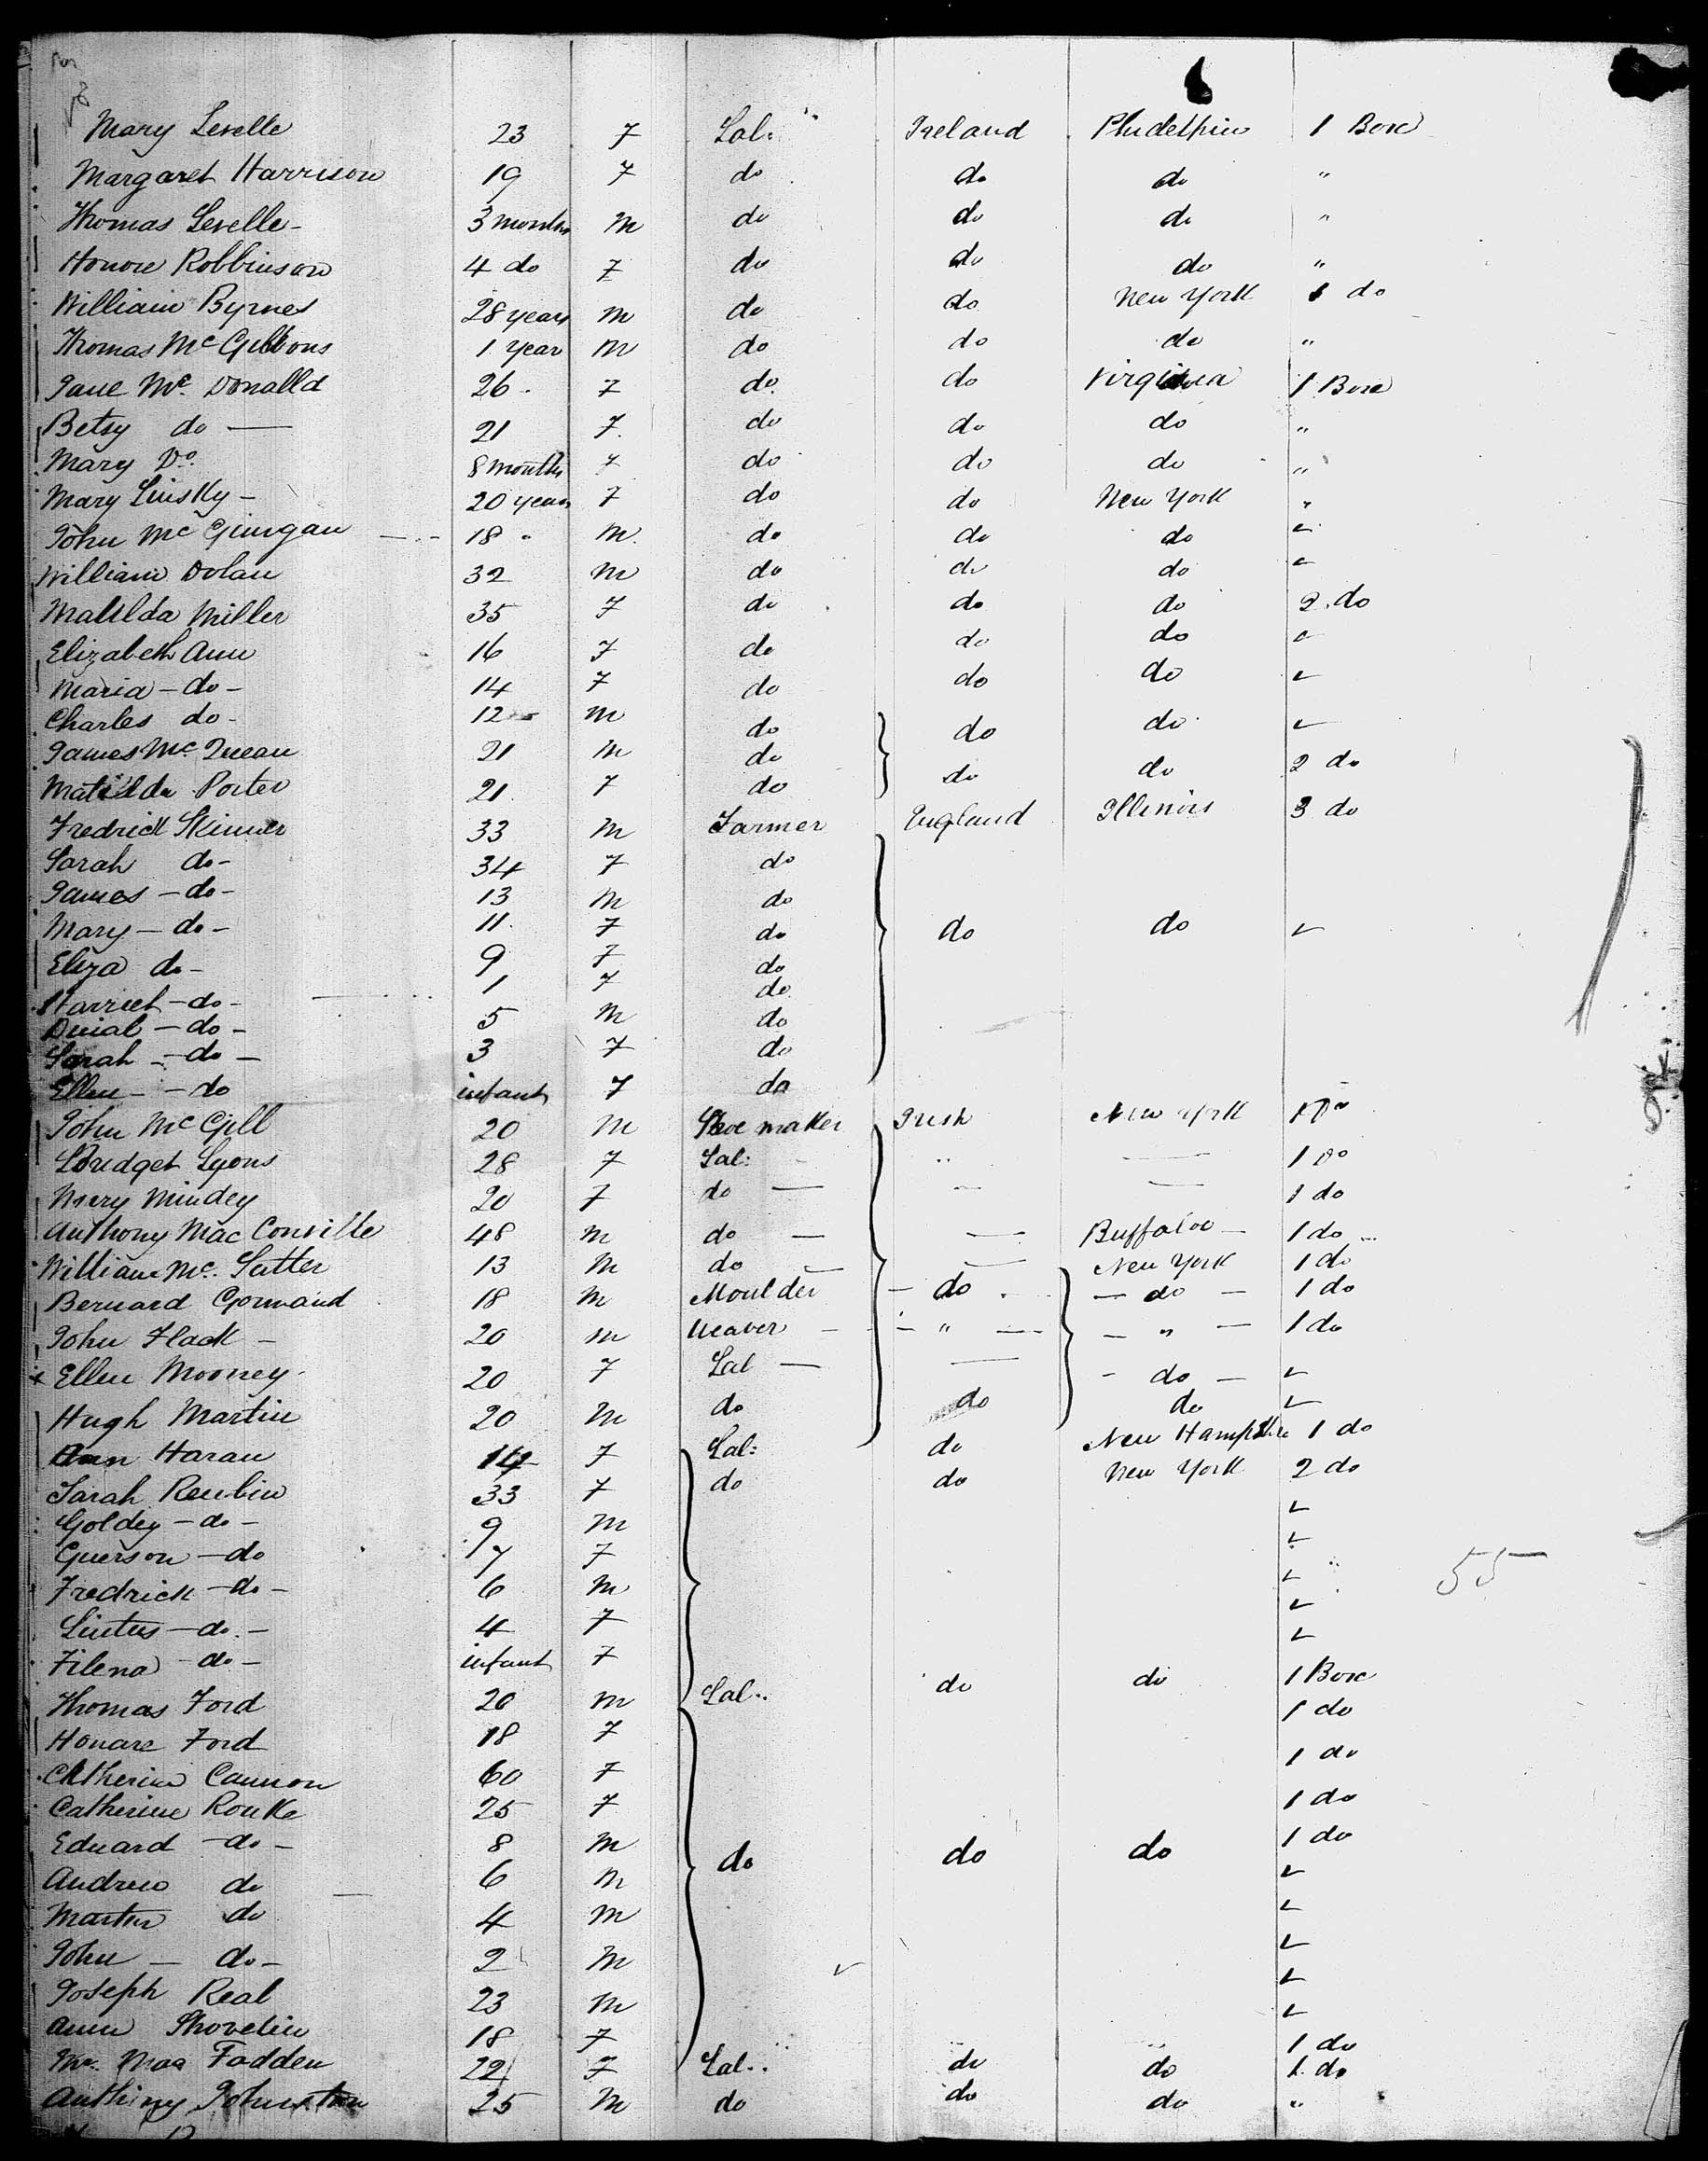 6
Mary Levelle 23 F Lab: Ireland Phidelphia 1 Box
Margaret Harrison 19 F do do do "
Thomas Levelle - 3 months M do do do "
Honore Robbinson 4 do F do do do "
William Byrnes 28 years M do do New York 1 do
Thomas McGibbons 1 year M do do do "
Jane Mc. Donalld 26 F do do Virginia 1 Box
Betsy do — 21 F do do do "
Mary Do. 8 months F do do do "
Mary Linsky - 20 years F do do New York "
John McGuigan 18 " M do do do
William Dolan 32 M do do do
Matilda Miller 35 F do do do 2 do
Elizabeth Ann 16 F do do do
Maria - do - 14 F do do do
Charles do - 12 M do do do
James Mc Quean 21 M do do do 2 do
Matilda Porter 21 F do
Fredrick Skinner 33 M Farmer England Illinois 3 do
Sarah do - 34 F do
James - do - 13 M do
Mary - do - 11 F do do do
Eliza do - 9 F do
Harriet - do - 1 F do
- do - 5 M do
Sarah - do - 3 F do
Ellen - do infant F do
John McGill 20 M Shoe maker Irish New York 1 Do
Bridget Lyons 28 F Lab: " — 1 Do
Mary Mindey 20 F do — — — 1 do
Anthony Mac Conville 48 M do — — Buffaloe - 1 do
William Mc. Sutter 13 M do — — New York 1 do
Bernard Gormand 18 M Moulder - do - - do - 1 do
John Flack - 20 M Weaver - - " - - " - 1 do
x Ellen Mooney 20 F Lab — — - do -
Hugh Martin 20 M do do do
Ann Haran 14 F Lab: do New Hampshire 1 do
Sarah Reubin 33 F do do New York 2 do
Goldey - do - 9 M
Guerson - do 7 F
Fredrick - do - 6 M 55
Lintus - do - 4 F
Filena - do - infant F
Thomas Ford 20 M Lab.. do do 1 Box
Honare Ford 18 F 1 do
Catherine Cannon 60 F 1 do
Catherine Rouke 25 F 1 do
Edward - do - 8 M do do do 1 do
Andrew do 6 M
Martin do 4 M
John - do - 2 M
Joseph Real 23 M
Ann Shovelin 18 F 1 do
Mac Fadden 22 F Lab.. do do 1 do
Anthiny Johnston 25 M do do do "